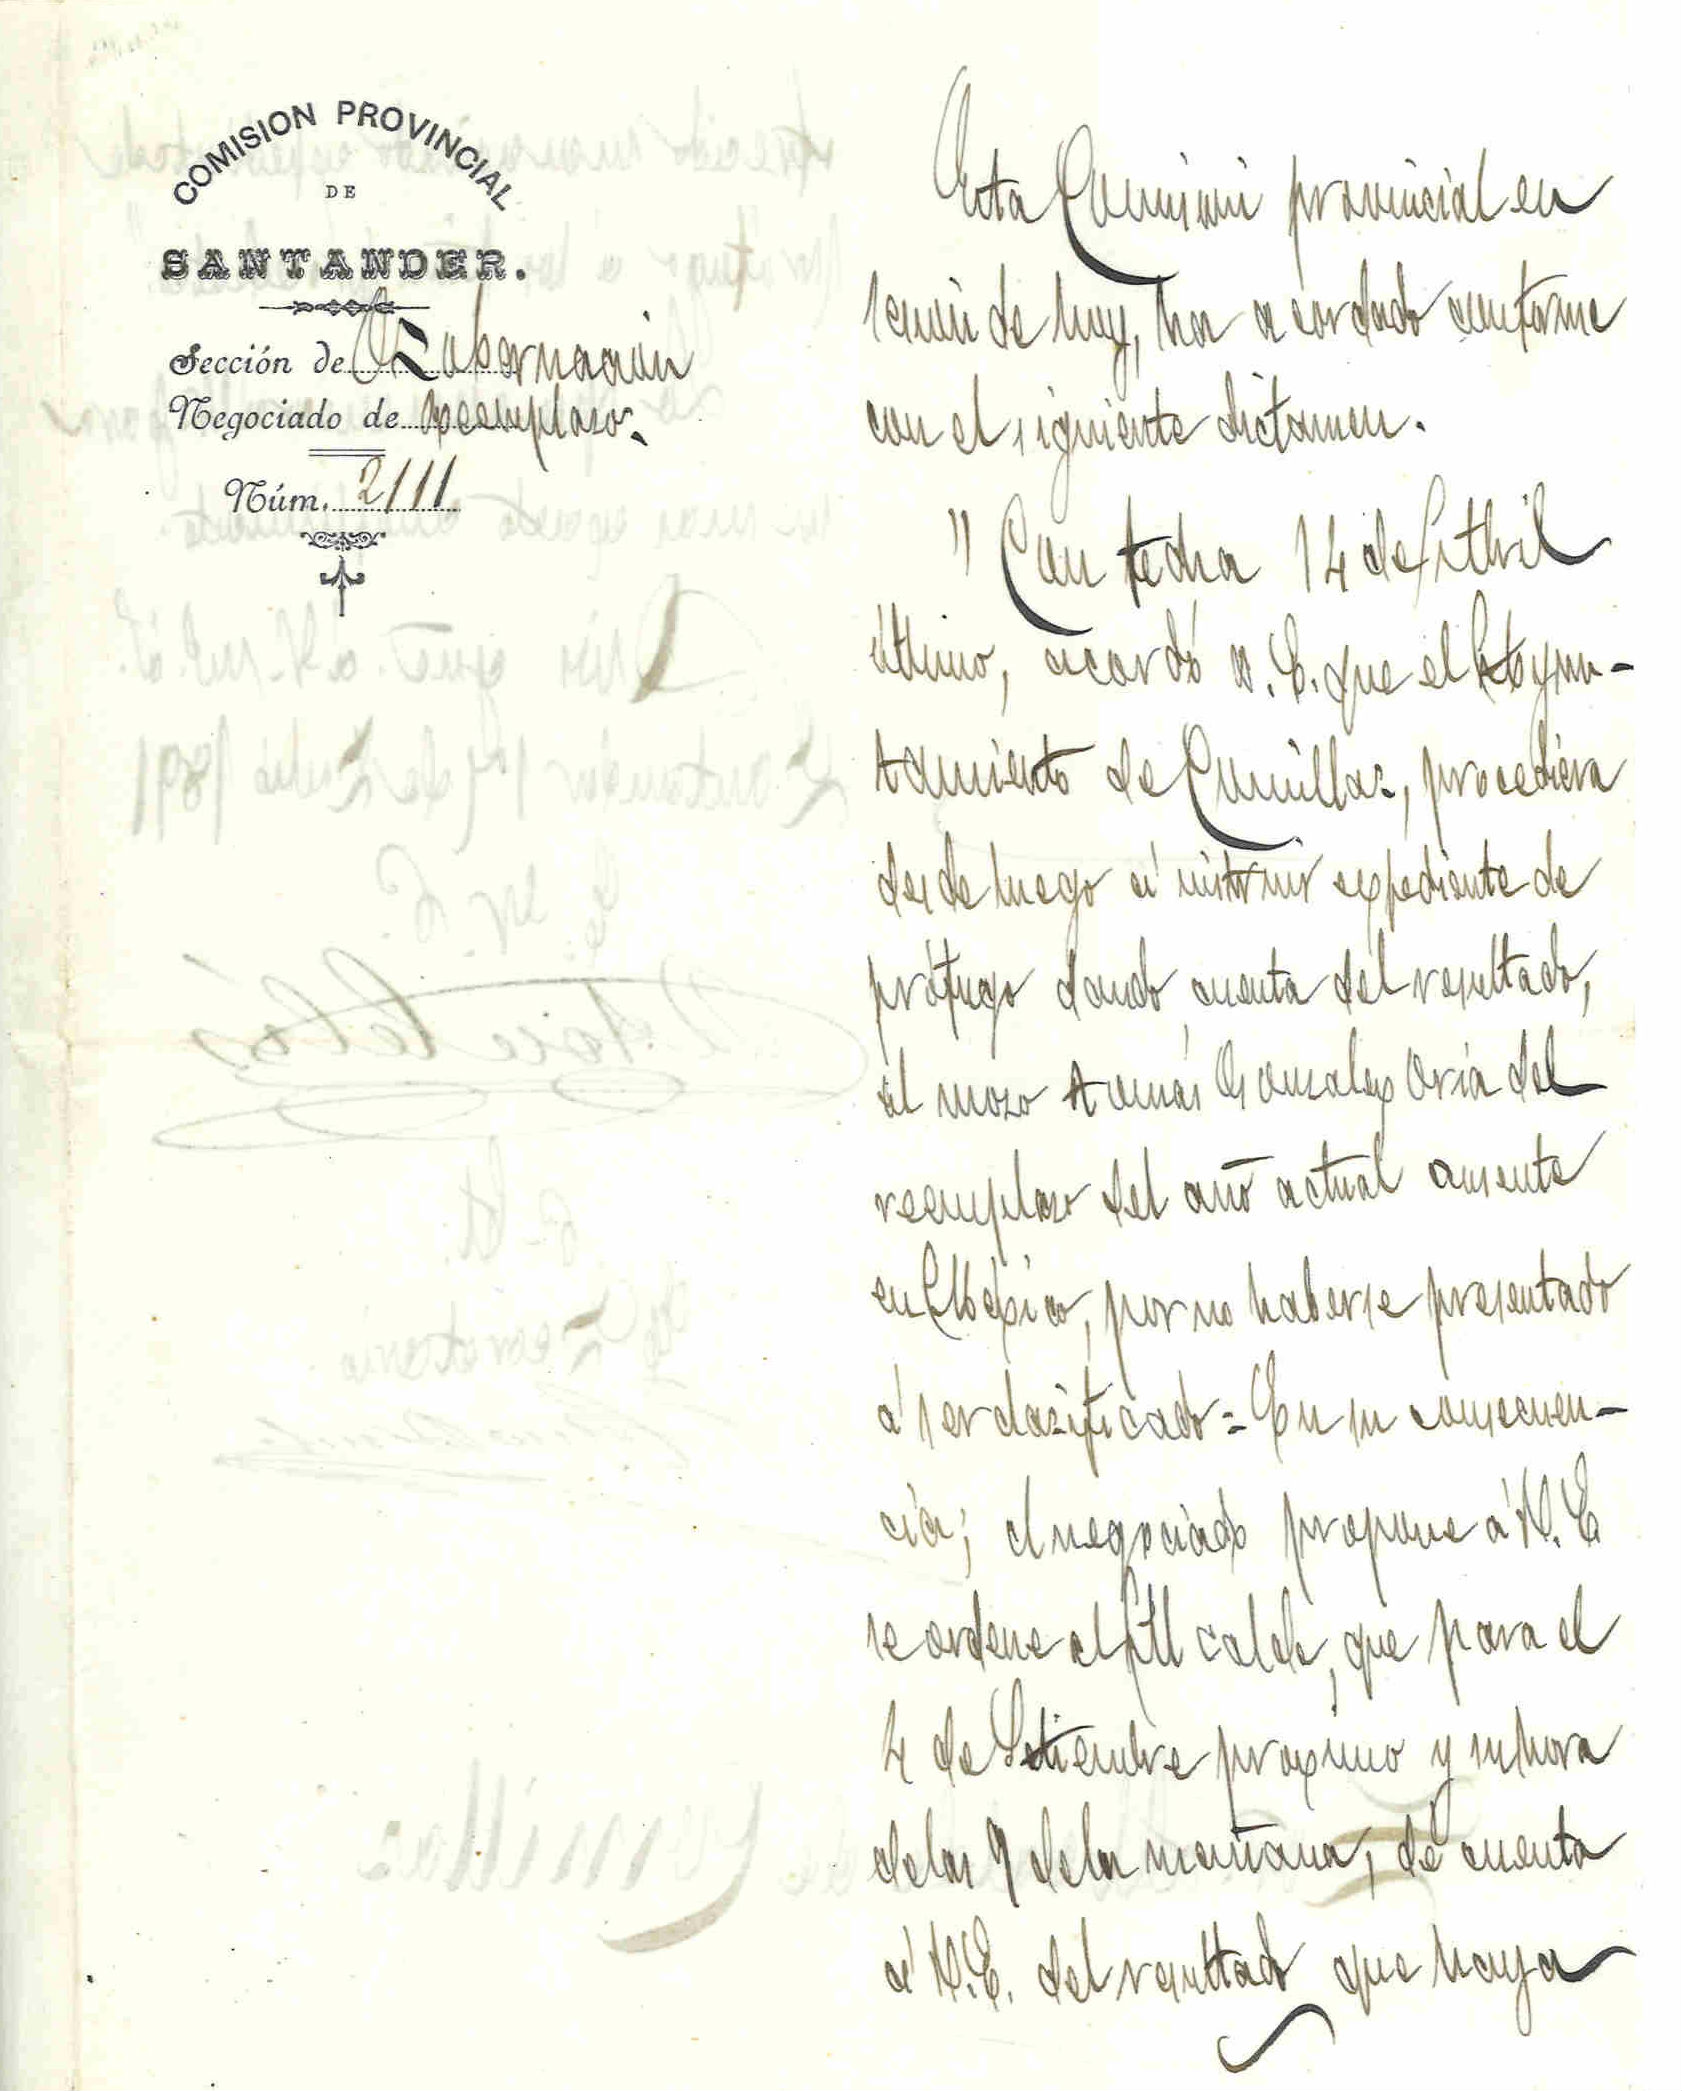 COMISION PROVINCIAL
DE
SANTANDER.
Sección de Gobernación
Negociado de reemplazos.
Núm. 2111
Esta Comisión provincial en
sesión de hoy, ha acordado conforme
con el siguiente dictamen.
"Con fecha 14 de Abril
último, acordó V. E. que el Ayun-
tamiento de Comillas, procediera
desde luego á instruir expediente de
prófugo dando cuenta del resultado,
al mozo Tomás Gonzalez Oria del
reemplazo del año actual ausente
en México, por no haberse presentado
á ser clasificado = En su consecuen-
cia; el negociado propone á V. E
se ordene al Alcalde, que para el
4 de Setiembre próximo y su hora
de las 9 de la mañana, dé cuenta
á V. E. del resultado que haya